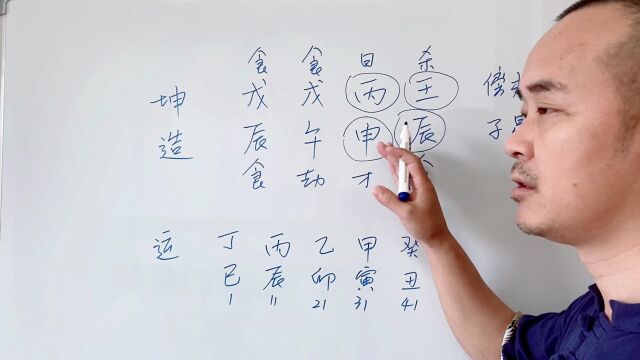 食 食 日 杀
坤 戊 戊 丙 壬
造 辰 午 申 辰
食 劫 才
子
运 丁 丙 乙 甲 癸
巳 辰 卯 寅 丑
1 11 21 31 41